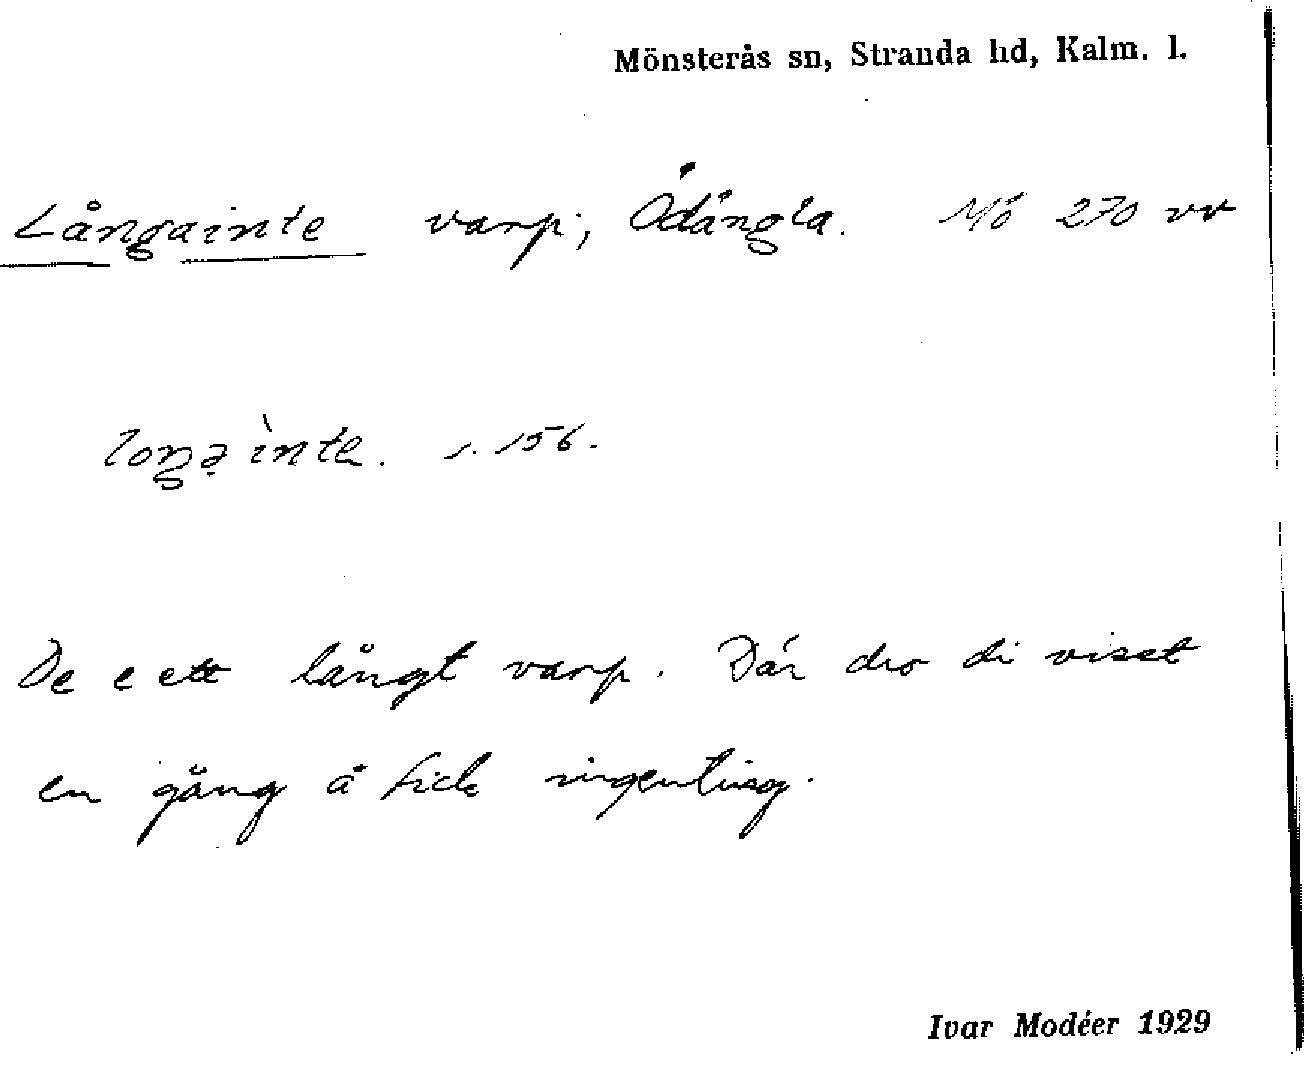 Mönsterås sn, Stranda hd, Kalm. l.
Långainte varp; Ödängla. Mö 270 vv
loŋgə ìnte. s. 156.
De e ett långt varp. Där dro di visst
en gång å fick ingenting.
Ivar Modéer 1929